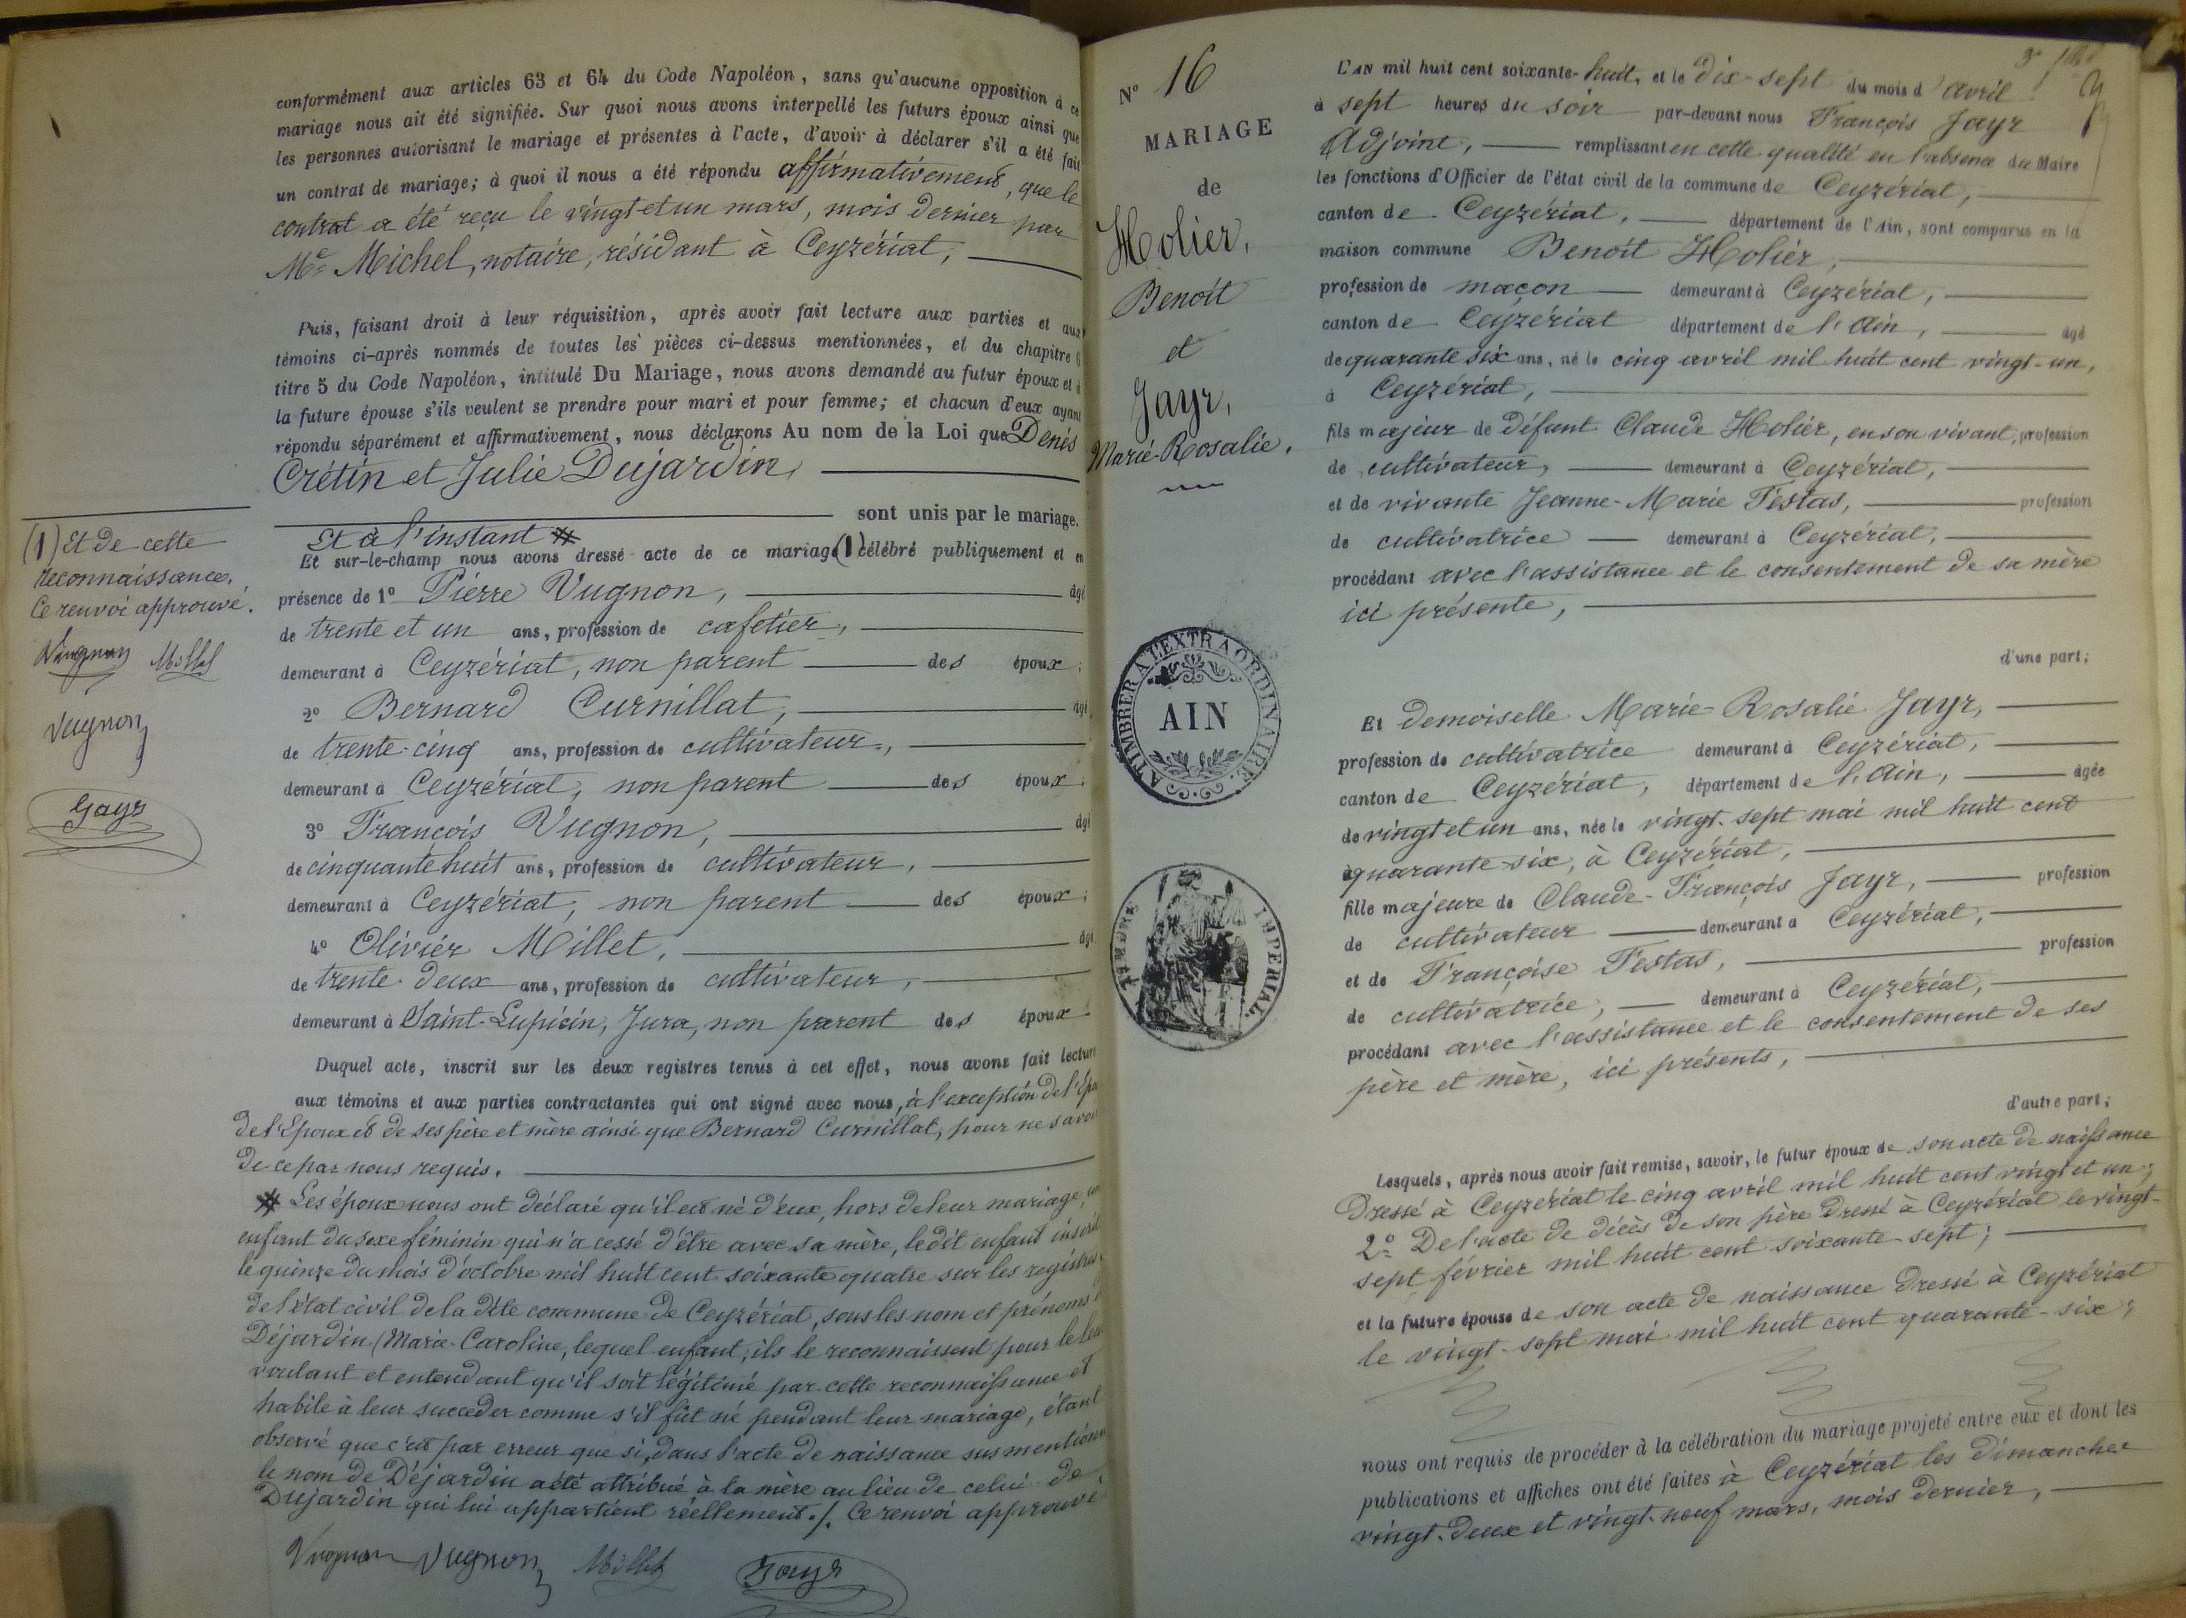 conformément aux articles 63 et 64 du Code Napoléon, sans qu'aucune opposition à ce
mariage nous ait été signifiée. Sur quoi nous avons interpellé les futurs époux ainsi que
les personnes autorisant le mariage et présentes à l'acte, d'avoir à déclarer s'il a été fait
un contrat de mariage; à quoi il nous a été répondu affirmativement, que le
contrat a été reçu le vingt et un mars, mois dernier par
Me Michel, notaire, résidant à Ceyzériat,
Puis, faisant droit à leur réquisition, après avoir fait lecture aux parties et aux
témoins ci-après nommés de toutes les pièces ci-dessus mentionnées, et du chapitre 6
titre 5 du Code Napoléon, intitulé Du Mariage, nous avons demandé au futur époux et à
la future épouse s'ils veulent se prendre pour mari et pour femme; et chacun d'eux ayant
répondu séparément et affirmativement, nous déclarons Au nom de la Loi que Denis
Crétin et Julie Dujardin,
sont unis par le mariage.
Et à l'instant #
Et sur-le-champ nous avons dressé acte de ce mariage (1) célébré publiquement et en
présence de 1° Pierre Vugnon, âgé
de trente et un ans, profession de cafetier,
demeurant à Ceyzériat, non parent des époux;
2° Bernard Curnillat, âgé
de trente-cinq ans, profession de cultivateur,
demeurant à Ceyzériat, non parent des époux;
3° François Vugnon, âgé
de cinquante huit ans, profession de cultivateur,
demeurant à Ceyzériat, non parent des époux;
4° Olivier Millet, âgé
de trente-deux ans, profession de cultivateur,
demeurant à Saint-Lupicin, Jura, non parent des époux.
Duquel acte, inscrit sur les deux registres tenus à cet effet, nous avons fait lecture
aux témoins et aux parties contractantes qui ont signé avec nous, à l'exception de l'Epou
de l'Epoux et de ses père et mère ainsi que Bernard Curnillat, pour ne savoir
de ce par nous requis.
# Les époux nous ont déclaré qu'il est né d'eux, hors de leur mariage, un
enfant du sexe féminin qui n'a cessé d'être avec sa mère, ledit enfant inscrit
le quinze du mois d'octobre mil huit cent soixante quatre sur les registres
de l'état civil de la dite commune de Ceyzériat, sous les nom et prénoms
Déjardin (Marie-Caroline, lequel enfant, ils le reconnaissent pour le leur
voulant et entendant qu'il soit légitimé par cette reconnaissance et
habile à leur succeder comme s'il fût né pendant leur mariage, étant
observé que c'est par erreur que si, dans l'acte de naissance sus mentionné
le nom de Déjardin a été attribué à la mère au lieu de celui de
Dujardin qui lui appartient réellement./. Ce renvoi approuvé
Vugnon Vugnon Millet Jayr
(1) Et de cette
reconnaissance.
Ce renvoi approuvé.
Vugnon Millet
Vugnon
Jayr
N° 16
MARIAGE
de
Holier,
Benoit
et
Jayr,
Marie-Rosalie.
A TIMBRER A L'EXTRAORDINAIRE.
AIN
TIMBRE IMPERIAL.
L'AN mil huit cent soixante-huit, et le dix-sept du mois d'avril
à sept heures du soir par-devant nous François Jayr
Adjoint, remplissant en cette qualité en l'absence du Maire
les fonctions d'Officier de l'état civil de la commune de Ceyzériat,
canton de Ceyzériat, département de l'Ain, sont comparus en la
maison commune Benoit Holier,
profession de maçon demeurant à Ceyzériat,
canton de Ceyzériat département de l'Ain, âgé
de quarante six ans, né le cinq avril mil huit cent vingt-un,
à Ceyzériat,
fils majeur de défunt Claude Holier, en son vivant, profession
de cultivateur, demeurant à Ceyzériat,
et de vivante Jeanne-Marie Festas, profession
de cultivatrice demeurant à Ceyzériat,
procédant avec l'assistance et le consentement de sa mère
ici présente,
d'une part;
Et demoiselle Marie-Rosalie Jayr,
profession de cultivatrice demeurant à Ceyzériat,
canton de Ceyzériat, département de l'Ain, âgée
de vingt et un ans, née le vingt-sept mai mil huit cent
quarante-six, à Ceyzériat,
fille majeure de Claude-François Jayr, profession
de cultivateur demeurant à Ceyzériat,
et de Françoise Festas, profession
de cultivatrice, demeurant à Ceyzériat,
procédant avec l'assistance et le consentement de ses
père et mère, ici présents,
d'autre part;
Lesquels, après nous avoir fait remise, savoir, le futur époux de son acte de naissance
Dressé à Ceyzériat le cinq avril mil huit cent vingt et un;
2° De l'acte de décès de son père dressé à Ceyzériat le vingt-
sept février mil huit cent soixante-sept;
et la future épouse de son acte de naissance dressé à Ceyzériat
le vingt-sept mai mil huit cent quarante-six;
nous ont requis de procéder à la célébration du mariage projeté entre eux et dont les
publications et affiches ont été faites à Ceyzériat les dimanches
vingt-deux et vingt-neuf mars, mois dernier,